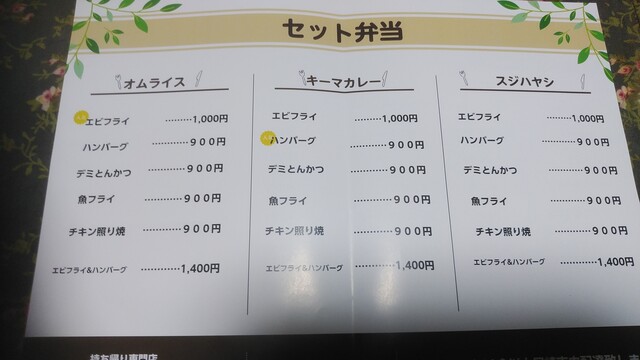 セット弁当
オムライス
エビフライ ………1,000円
ハンバーグ …………900円
デミとんかつ …………900円
魚フライ …………900円
チキン照り焼 …………900円
エビフライ&ハンバーグ …………1,400円
キーマカレー
エビフライ ………1,000円
ハンバーグ …………900円
デミとんかつ …………900円
魚フライ …………900円
チキン照り焼 …………900円
エビフライ&ハンバーグ …………1,400円
スジハヤシ
エビフライ ………1,000円
ハンバーグ …………900円
デミとんかつ …………900円
魚フライ …………900円
チキン照り焼 …………900円
エビフライ&ハンバーグ …………1,400円
持ち帰り専門店